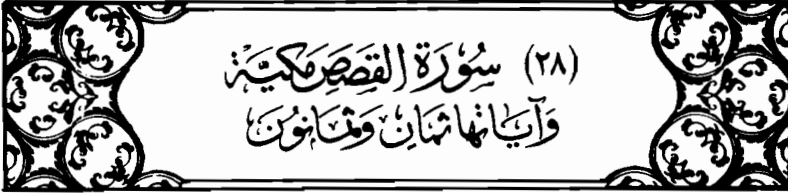 (٢٨) سُوْرَةُ القَصَصِ مَكيَّة
وَآيَاتها ثَمَانِ وَثمَانوُنَ